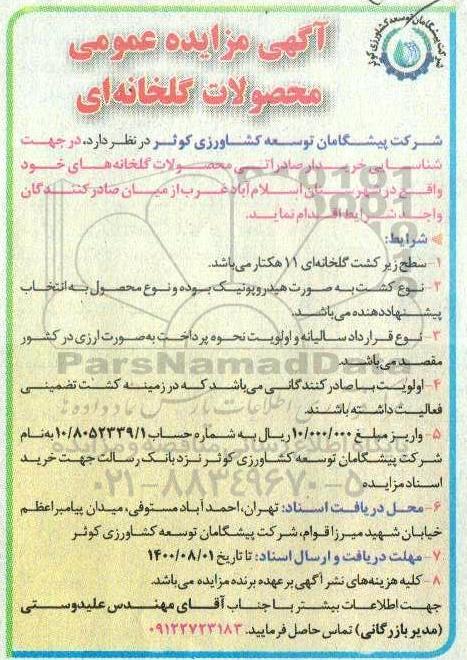 آگهی مزایده عمومی
محصولات گلخانه‌ای
شرکت پیشگامان توسعه کشاورزی کوثر
شرکت پیشگامان توسعه کشاورزی کوثر در نظر دارد، در جهت
شناسایی خریدار صادراتی محصولات گلخانه‌های خود
واقع در شهرستان اسلام آباد غرب از میان صادرکنندگان
واجد شرایط اقدام نماید.
شرایط:
۱- سطح زیر کشت گلخانه‌ای ۱۱ هکتار می‌باشد.
۲- نوع کشت به صورت هیدروپونیک بوده و نوع محصول به انتخاب
پیشنهاددهنده می‌باشد.
۳- نوع قرارداد سالیانه و اولویت نحوه پرداخت به‌صورت ارزی در کشور
مقصد می‌باشد.
۴- اولویت با صادرکنندگانی می‌باشد که در زمینه کشت تضمینی
فعالیت داشته باشند.
۵- واریز مبلغ ۱۰/۰۰۰/۰۰۰ ریال به شماره حساب ۱۰/۸۰۵۲۳۳۹/۱ به‌نام
شرکت پیشگامان توسعه کشاورزی کوثر نزد بانک رسالت جهت خرید
اسناد مزایده
۶- محل دریافت اسناد: تهران، احمدآباد مستوفی، میدان پیامبر اعظم
خیابان شهید میرزا قوام، شرکت پیشگامان توسعه کشاورزی کوثر
۷- مهلت دریافت و ارسال اسناد: تا تاریخ ۱۴۰۰/۰۸/۰۱
۸- کلیه هزینه‌های نشر آگهی بر عهده برنده مزایده می‌باشد.
جهت اطلاعات بیشتر با جناب آقای مهندس علیدوستی
(مدیر بازرگانی) تماس حاصل فرمایید. ۰۹۱۲۲۷۲۳۱۸۳
ParsNamadData
۰۲۱-۸۸۳۴۹۶۷۰-۵